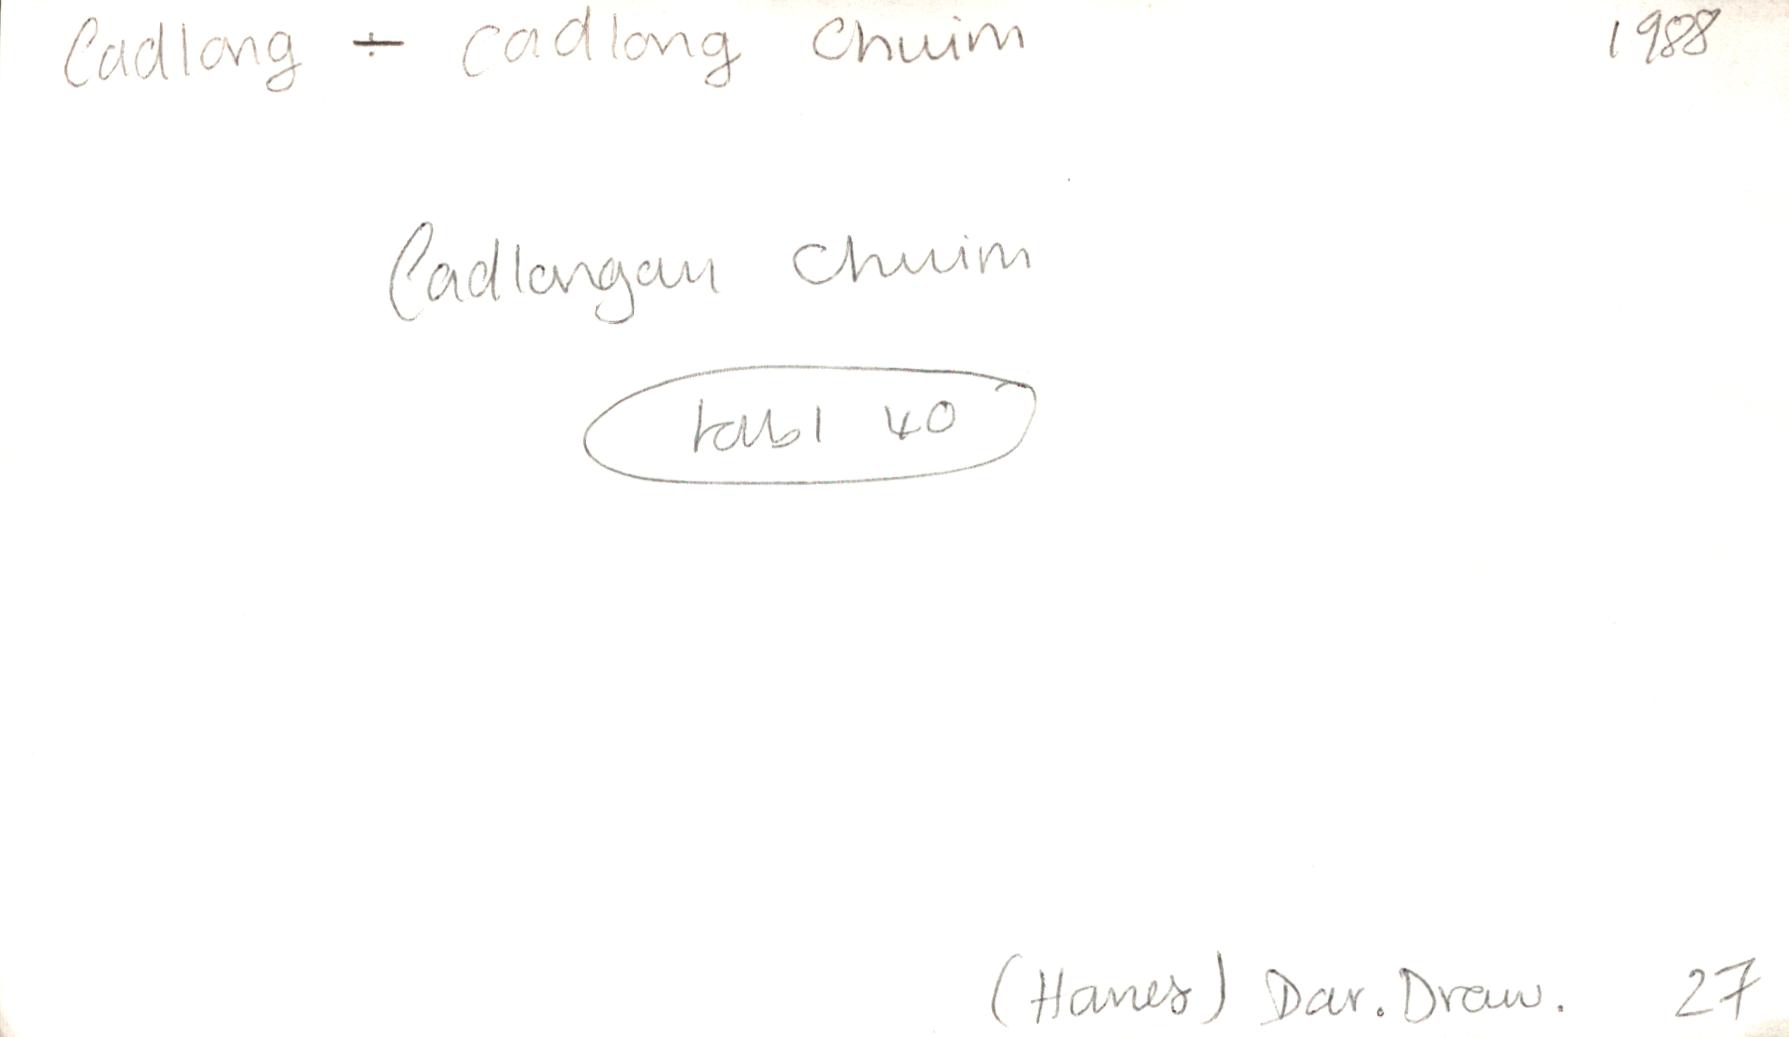 Cadlong ÷ cadlong chwim 1988
Cadlongau chwim
tabl 40
(Hanes) Dar. Draw. 27